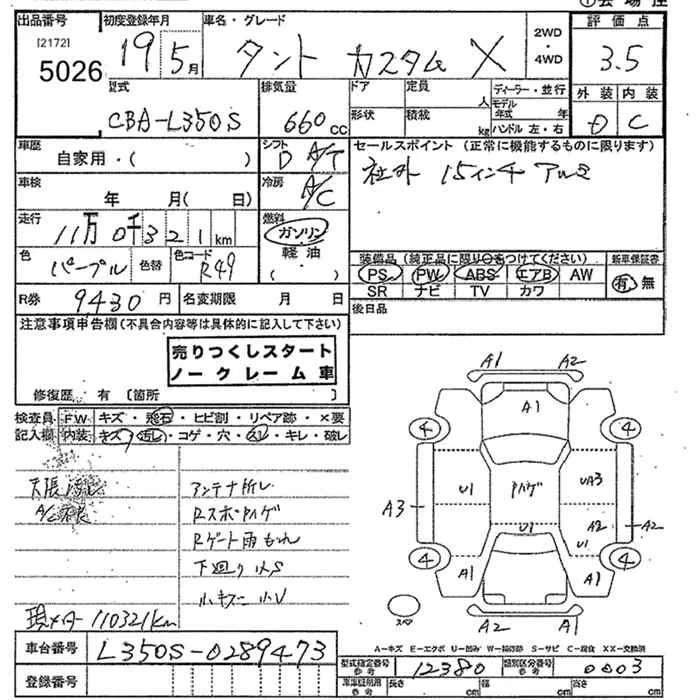 出品番号 初度登録年月 車名・グレード 2WD・4WD 評価点
[2172]
5026 19 5月 タント カスタム X 3.5
型式 排気量 ドア 定員 人 ディーラー・並行 外装 内装
CBA-L350S 660cc 形状 積載 kg モデル年式 年 ハンドル 左・右 D C
車歴 シフト セールスポイント(正常に機能するものに限ります)
自家用・( ) D A/T 社外 15インチ アルミ
車検 年 月( 日) 冷房 A/C
走行 11万0千321km 燃料 ガソリン 軽油 ( ・ )
装備品(純正品に限り○をつけてください) 新車保証書
色 パープル 色替 色コード R49 PS PW ABS エアB AW 有・無
SR ナビ TV カワ
R券 9430円 名変期限 月 日 後日品
注意事項申告欄(不具合内容等は具体的に記入して下さい)
売りつくしスタート
ノークレーム車
修復歴 有 〔箇所 〕
検査員 FW キズ・飛石・ヒビ割・リペア跡・×要
記入欄 内装 キズ・汚レ・コゲ・穴・スレ・キレ・破レ
天張汚レ アンテナ折レ
A/C不良 RスポPハゲ
Rゲート雨もれ
下廻りサS
小キズ 小U
現メーター110321km
A1 A2
A1
4 4
U1 Pハゲ UA3
A3 U1 A2 A2
U1
4 4
A1 A1
スペ
A2 A1
車台番号 L350S-0289473
A-キズ E-エクボ U-凹み W-補修跡 S-サビ C-腐食 XX-交換済
型式指定番号 参考 12380 類別区分番号 参考 0003
登録番号 車庫証明用 参考 長さ cm 幅 cm 高さ cm